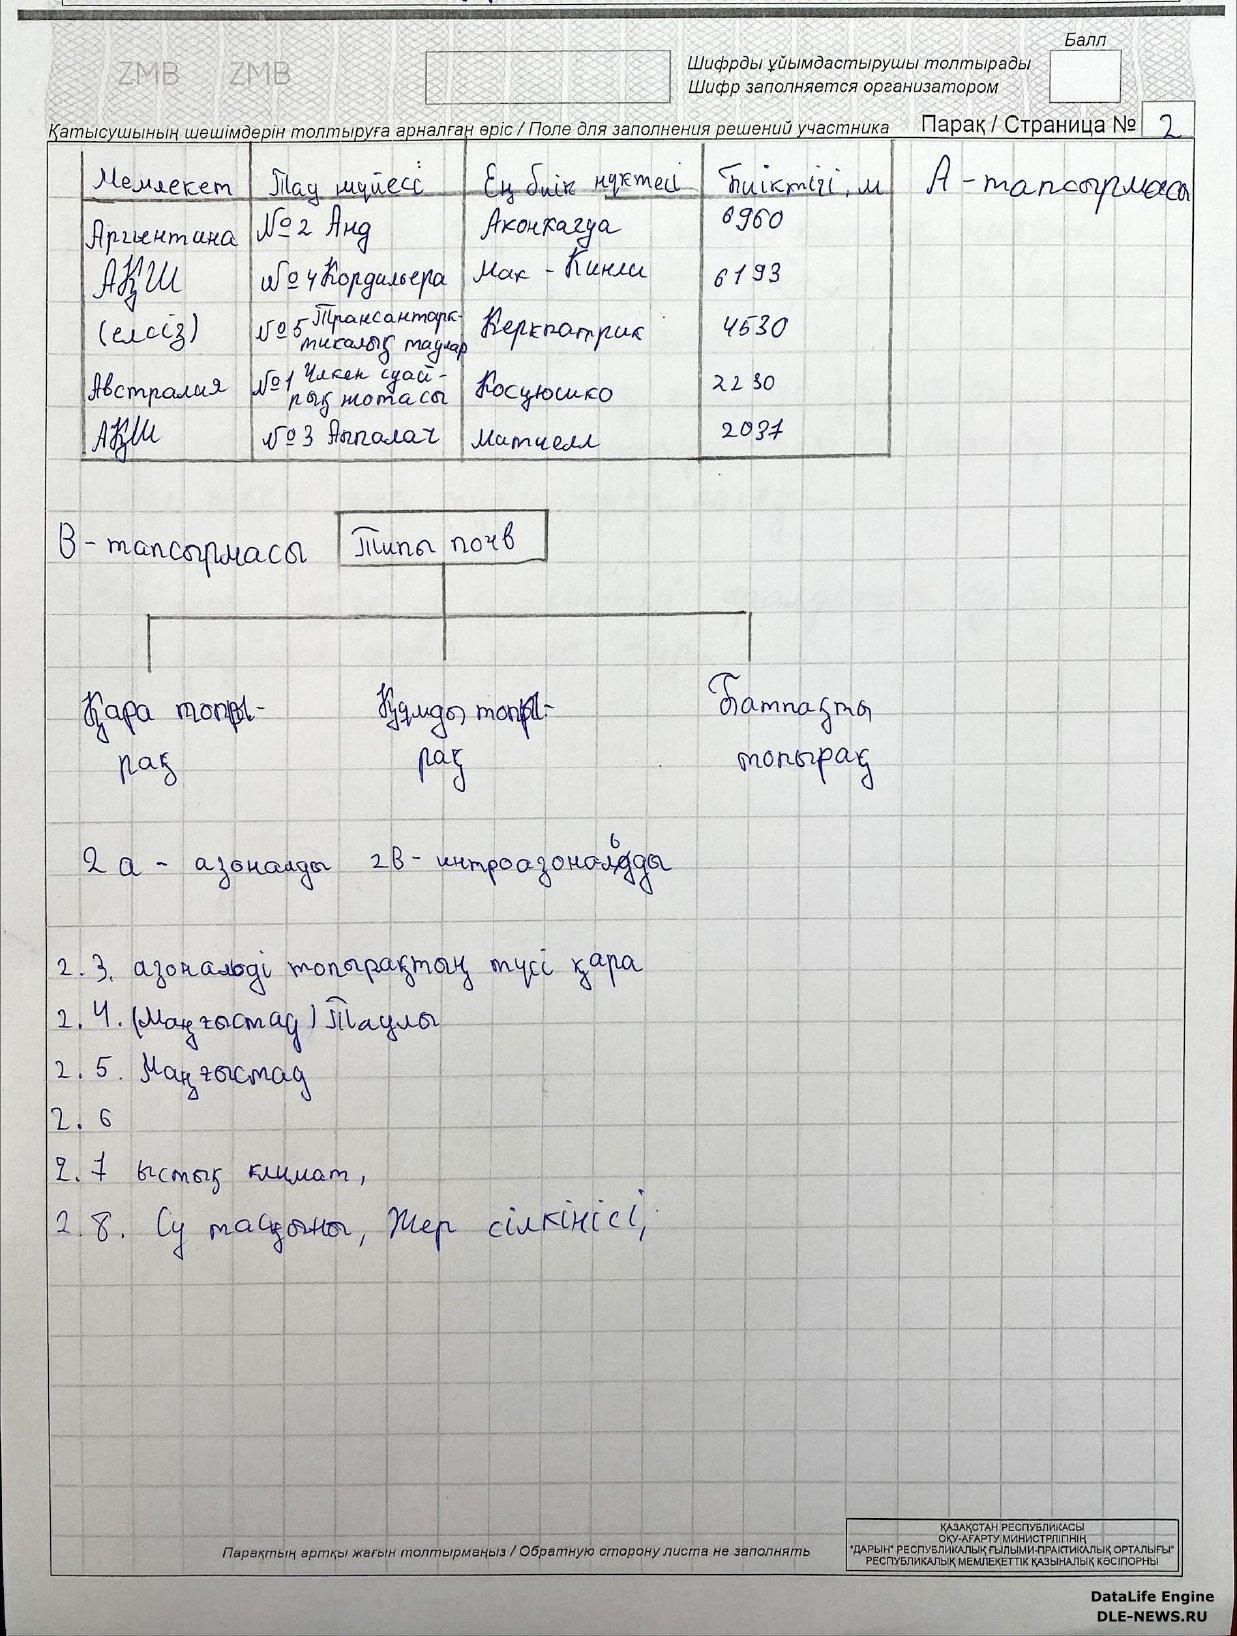 ZMB ZMB
Балл
Шифрды ұйымдастырушы толтырады
Шифр заполняется организатором
Қатысушының шешімдерін толтыруға арналған өріс / Поле для заполнения решений участника
Парақ / Страница № 2
Мемлекет Тау жүйесі Ең биік нүктесі Биіктігі, м А-тапсырмасы
Аргентина №2 Анд Аконкагуа 6960
АҚШ №4 Кордильера Мак-Кинли 6193
(елсіз) №5 Трансантарк-
тикалық таулар Керкпатрик 4530
Австралия №1 Үлкен суай-
рық жотасы Косцюшко 2230
АҚШ №3 Аппалач Митчелл 2037
В-тапсырмасы Типы почв
Қара топы-
рақ
Құмды топы-
рақ
Батпақты
топырақ
2а - азоналды 2В - интроазональды
2.3. азональді топырақтың түсі қара
2.4. (Маңғыстау) Таулы
2.5. Маңғыстау
2.6
2.7 ыстық климат,
2.8. Су тасқыны, Жер сілкінісі,
Парақтың артқы жағын толтырмаңыз / Обратную сторону листа не заполнять
ҚАЗАҚСТАН РЕСПУБЛИКАСЫ
ОҚУ-АҒАРТУ МИНИСТРЛІГІНІҢ
"ДАРЫН" РЕСПУБЛИКАЛЫҚ ҒЫЛЫМИ-ПРАКТИКАЛЫҚ ОРТАЛЫҒЫ"
РЕСПУБЛИКАЛЫҚ МЕМЛЕКЕТТІК ҚАЗЫНАЛЫҚ КӘСІПОРНЫ
DataLife Engine
DLE-NEWS.RU